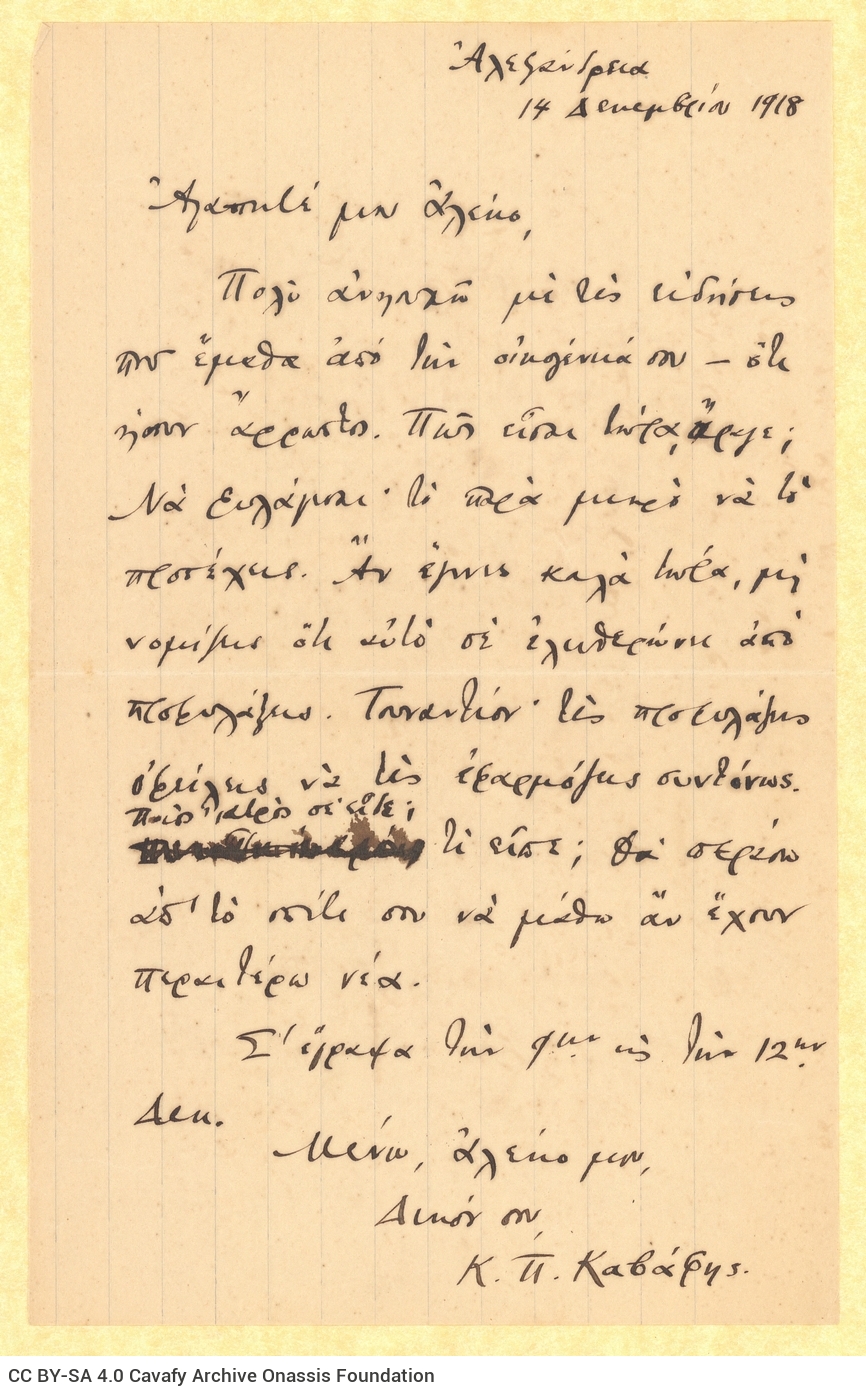 Ἀλεξάνδρεια
14 Δεκεμβρίου 1918
Ἀγαπητέ μου Ἀλέκο,
Πολὺ ἀνησυχῶ μὲ τὲς εἰδήσεις
ποὺ ἔμαθα ἀπὸ τὴν οἰκογένειά σου — ὅτι
ἤσουν ἄρρωστος. Πῶς εἶσαι τώρα, ἄραγε;
Νὰ φυλάγεσαι· τὸ παρὰ μικρὸ νὰ τὸ
προσέχεις. Ἂν ἔγινες καλὰ τώρα, μὴ
νομίζεις ὅτι αὐτὸ σὲ ἐλευθερώνει ἀπὸ
προφυλάξεις. Τουναντίον· τὲς προφυλάξεις
ὀφείλεις νὰ τὲς ἐφαρμόζεις συντόνως.
Ποιὸς ἰατρὸς σὲ εἶδε;
τί εἶπε; Θὰ περάσω
ἀπ' τὸ σπίτι σου νὰ μάθω ἂν ἔχουν
περαιτέρω νέα.
Σ' ἔγραψα τὴν 9ην καὶ τὴν 12ην
Δεκ.
Μένω, Ἀλέκο μου,
Δικός σου,
Κ. Π. Καβάφης.